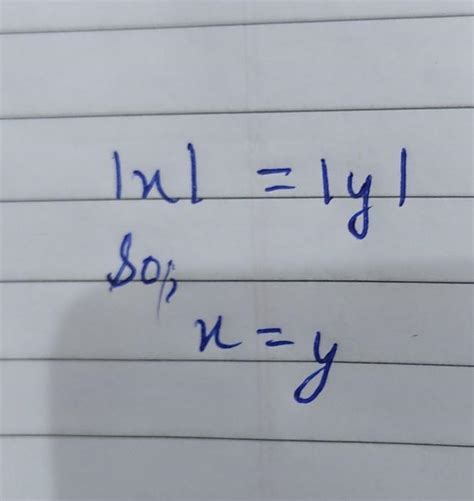 |x| = |y|
So,
x = y